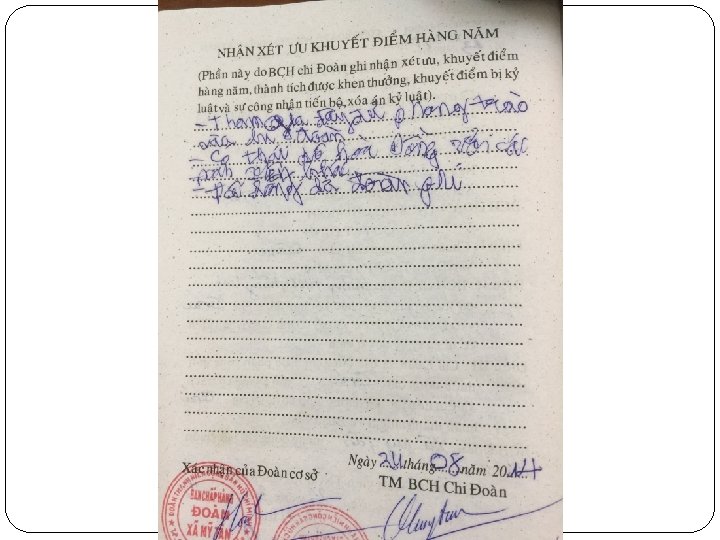 NHẬN XÉT ƯU KHUYẾT ĐIỂM HÀNG NĂM
(Phần này do BCH chi Đoàn ghi nhận xét ưu, khuyết điểm
hàng năm, thành tích được khen thưởng, khuyết điểm bị kỷ
luật và sự công nhận tiến bộ, xóa án kỷ luật).
- Tham gia đầy đủ phong trào
của chi đoàn
- Có thái độ hòa đồng với các
đoàn viên khác
- đóng đủ đoàn phí
Xác nhận của Đoàn cơ sở
Ngày 24 tháng 08 năm 2014
TM BCH Chi Đoàn
BAN CHẤP HÀNH
ĐOÀN